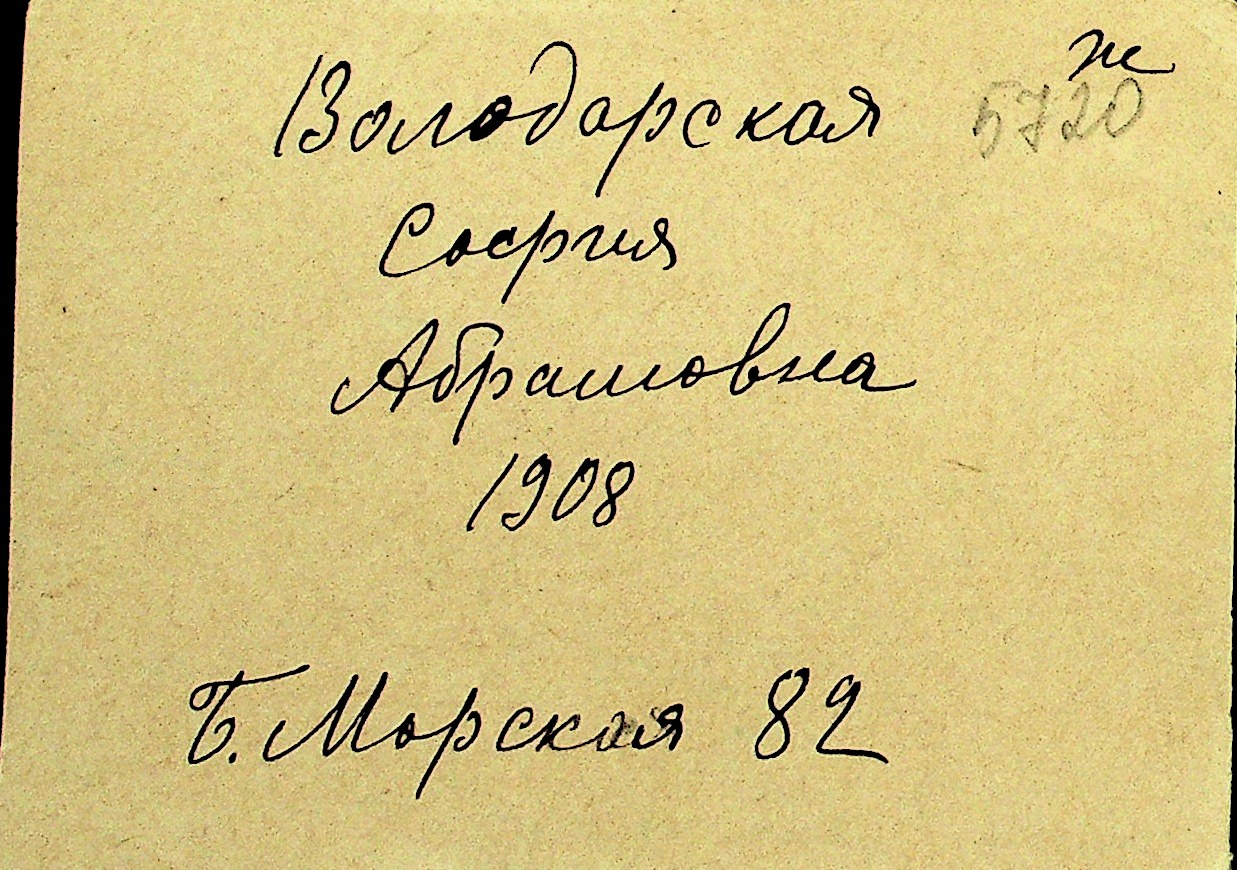 ж
Володарская 5720
София
Абрамовна
1908
Б. Морская 82